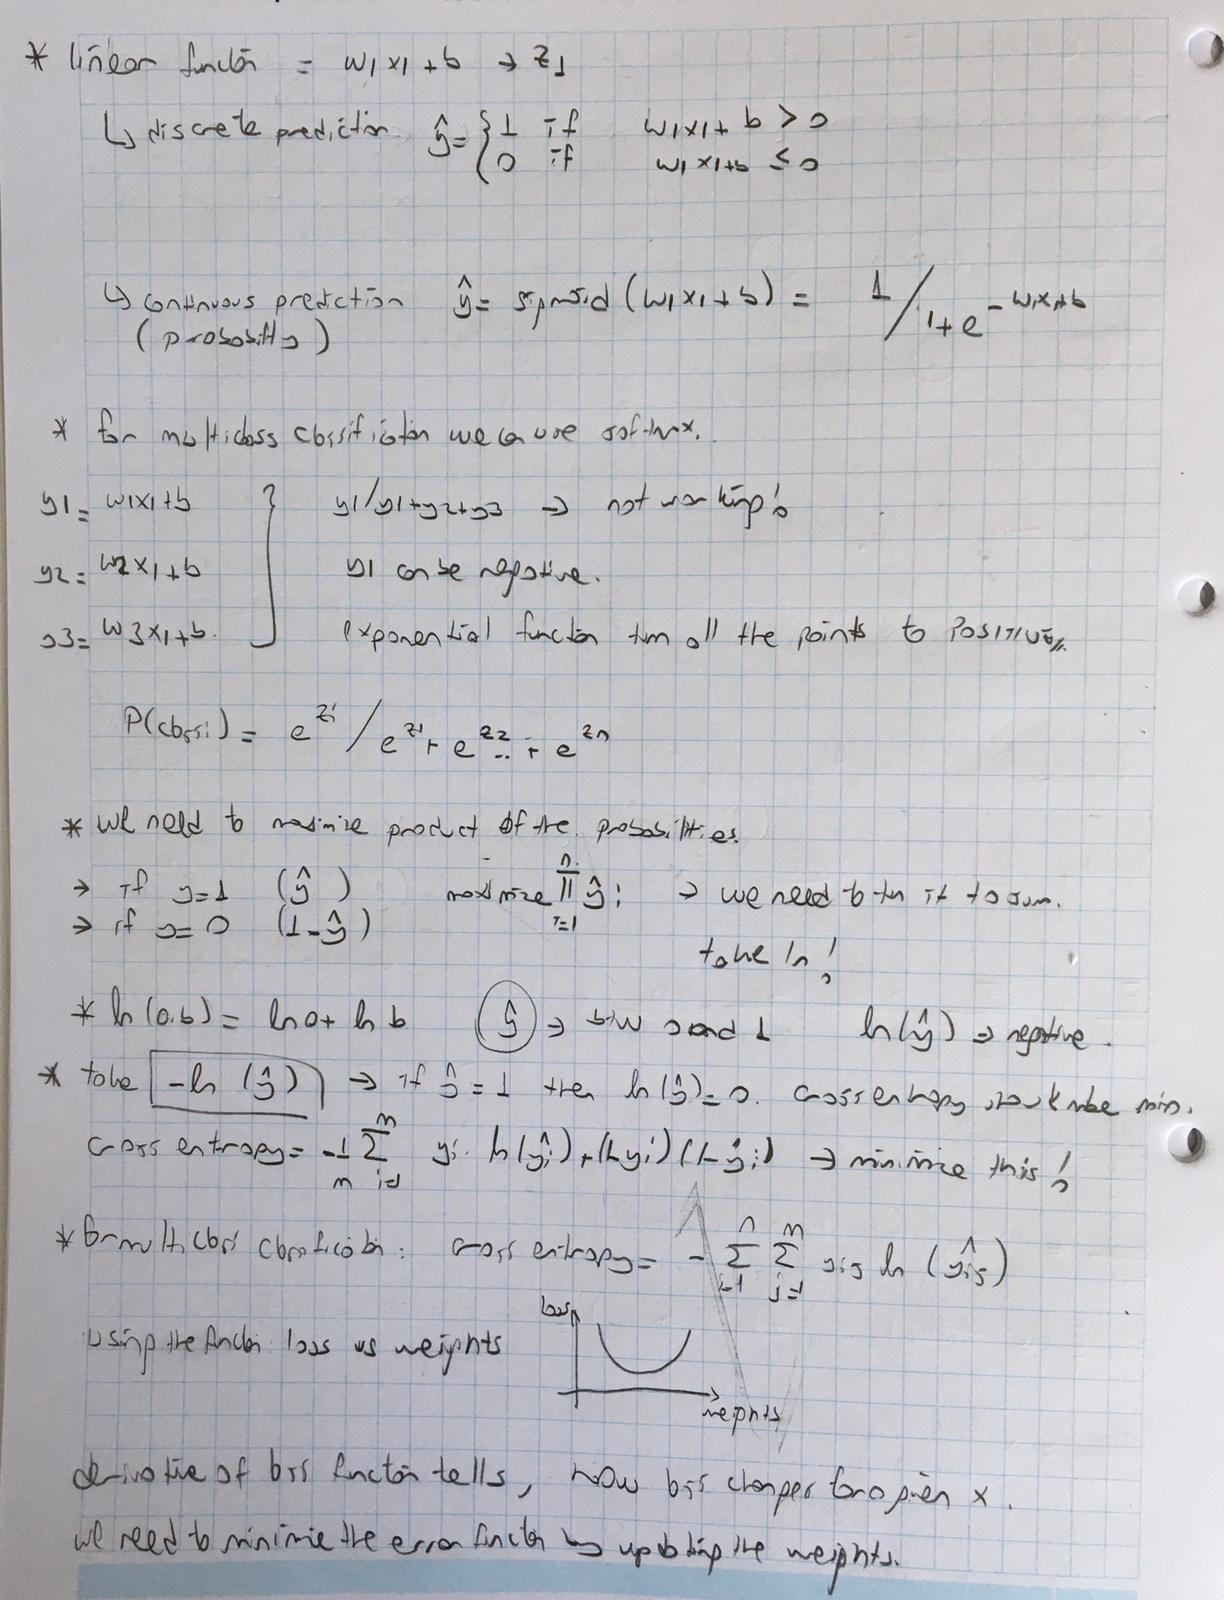 * linear function = w1x1+b → z1
↳ discrete prediction ŷ= { 1 if w1x1+b > 0
0 if w1x1+b ≤ 0
↳ continuous prediction ŷ= sigmoid (w1x1+b) = 1/1+e^-w1x1+b
(probability)
* for multiclass classification we can use softmax.
y1= w1x1+b } y1/y1+y2+y3 → not working!
y2= w2x1+b y1 can be negative.
y3= w3x1+b. exponential function turn all the points to POSITIVE//
P(class i) = e^zi / e^z1 + e^z2 .. + e^zn
* we need to maximize product of the probabilities.
→ if y=1 (ŷ) maximize ∏ i=1 n ŷi → we need to turn it to sum.
→ if y=0 (1-ŷ)
take ln!
* ln(a.b) = ln a + ln b ŷ → btw 0 and 1 ln(ŷ) → negative.
* take -ln(ŷ) → if ŷ=1 then ln(ŷ)=0. cross entropy should be min.
cross entropy= -1/m ∑ i=1 m yi. ln(ŷi)+(1-yi)(1-ŷi) → minimize this!
* for multi class classification: cross entropy= - ∑ i=1 n ∑ j=1 m yij ln (ŷij)
loss
Using the function loss vs weights
weights
derivative of loss function tells, how loss changes for a given x.
we need to minimize the error function by updating the weights.